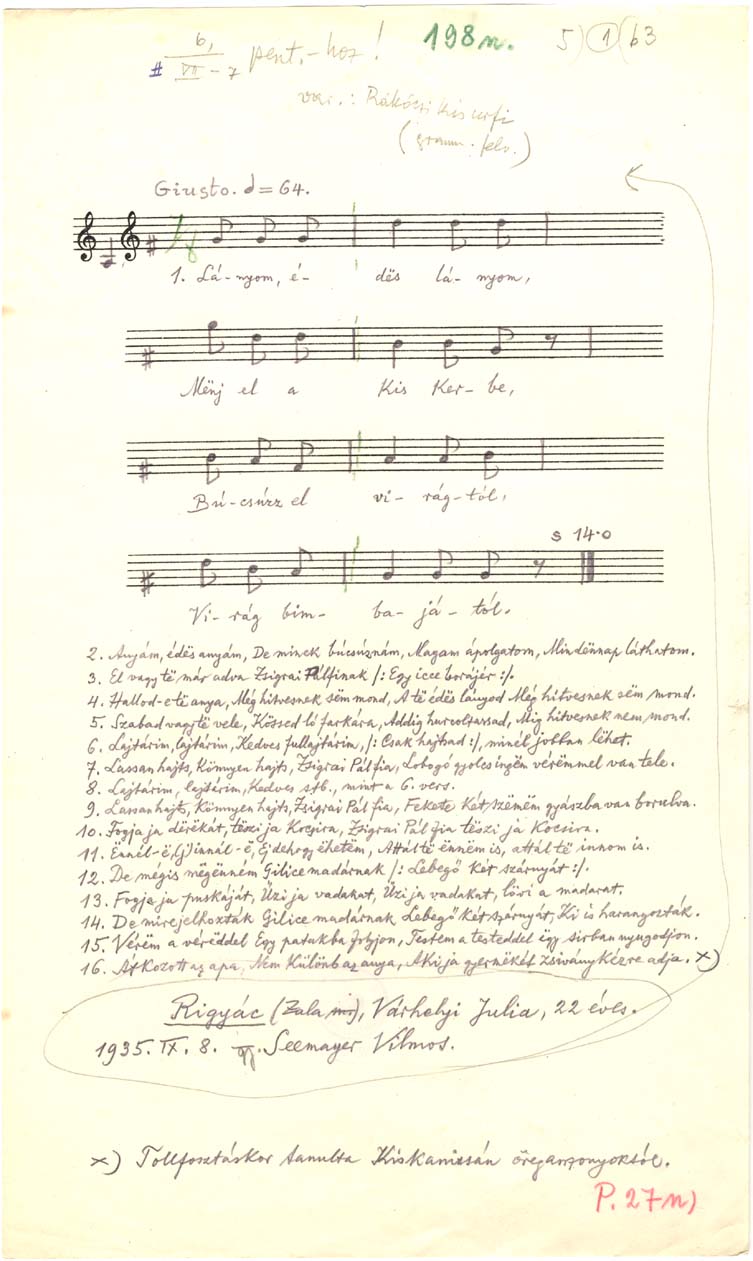 6, pent.-hoz! 198n. 5) 1 (b3
# VII - 7
var.: Rákóczi kis urfi
(gramm. felv.)
Giusto. = 64.
1. Lá-nyom, é- dës lá-nyom,
Mënj el a kis ker-be,
Bú-csúzz el vi-rág-tól,
s 14.0
Vi-rág bim- ba-já-tól.
2. Anyám, édës anyám, De minek búcsúznám, Magam ápolgatom, Mindënnap láthatom.
3. El vagy të már adva Zsigrai Pálfinak /: Egy icce borájér :/.
4. Hallod-e të anya, Még hitvesnek sëm mond, A të édës lányod Még hitvesnek sëm mond.
5. Szabad vagy të vele, Kössed ló farkára, Addig hurcoltassad, Míg hitvesnek nem mond.
6. Lajtárim, lajtárim, Kedves fullajtárim, /: Csak hajtsad :/, minél jobban lëhet.
7. Lassan hajts, Könnyen hajts, Zsigrai Pál fia, Lobogó gyolcsingëm vérëmmel van tele.
8. Lajtárim, lajtárim, Kedves stb., mint a 6. vers.
9. Lassan hajts, Könnyen hajts, Zsigrai Pál fia, Fekete két szëmëm gyászba van borulva.
10. Fogja ja dërëkát, tëszi ja kocsira, Zsigrai Pál fia tëszi ja kocsira.
11. Ënnél-ë, (j)innál-ë, Ej dehogy éhetëm, Attál të ënnëm is, attál të innom is.
12. De mégis mëgënném Gilice madárnak /: Lebegő két szárnyát :/.
13. Fogja ja puskáját, Űzi ja vadakat, Űzi ja vadakat, lövi a madarat.
14. De mire jelhozták Gilice madárnak Lebegő két szárnyát, Ki is harangozták.
15. Vérëm a vérëddel Egy patakba folyjon, Testem a testeddel ëgy sirban nyugodjon.
16. Átkozott az apa, Nem különb az anya, Aki ja gyermëkét zsivány kézre adja. x)
Rigyác (Zala m), Várhelyi Julia, 22 éves.
1935. IX. 8. Seemayer Vilmos.
x) Tollfosztáskor tanulta Kiskanizsán öregasszonyoktól.
P. 27n)